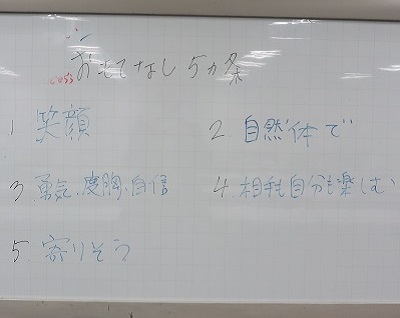 おもてなし5ヵ条
1 笑顔
2. 自然体で
3. 勇気、度胸、自信
4. 相手も自分も楽しむ
5. 寄りそう